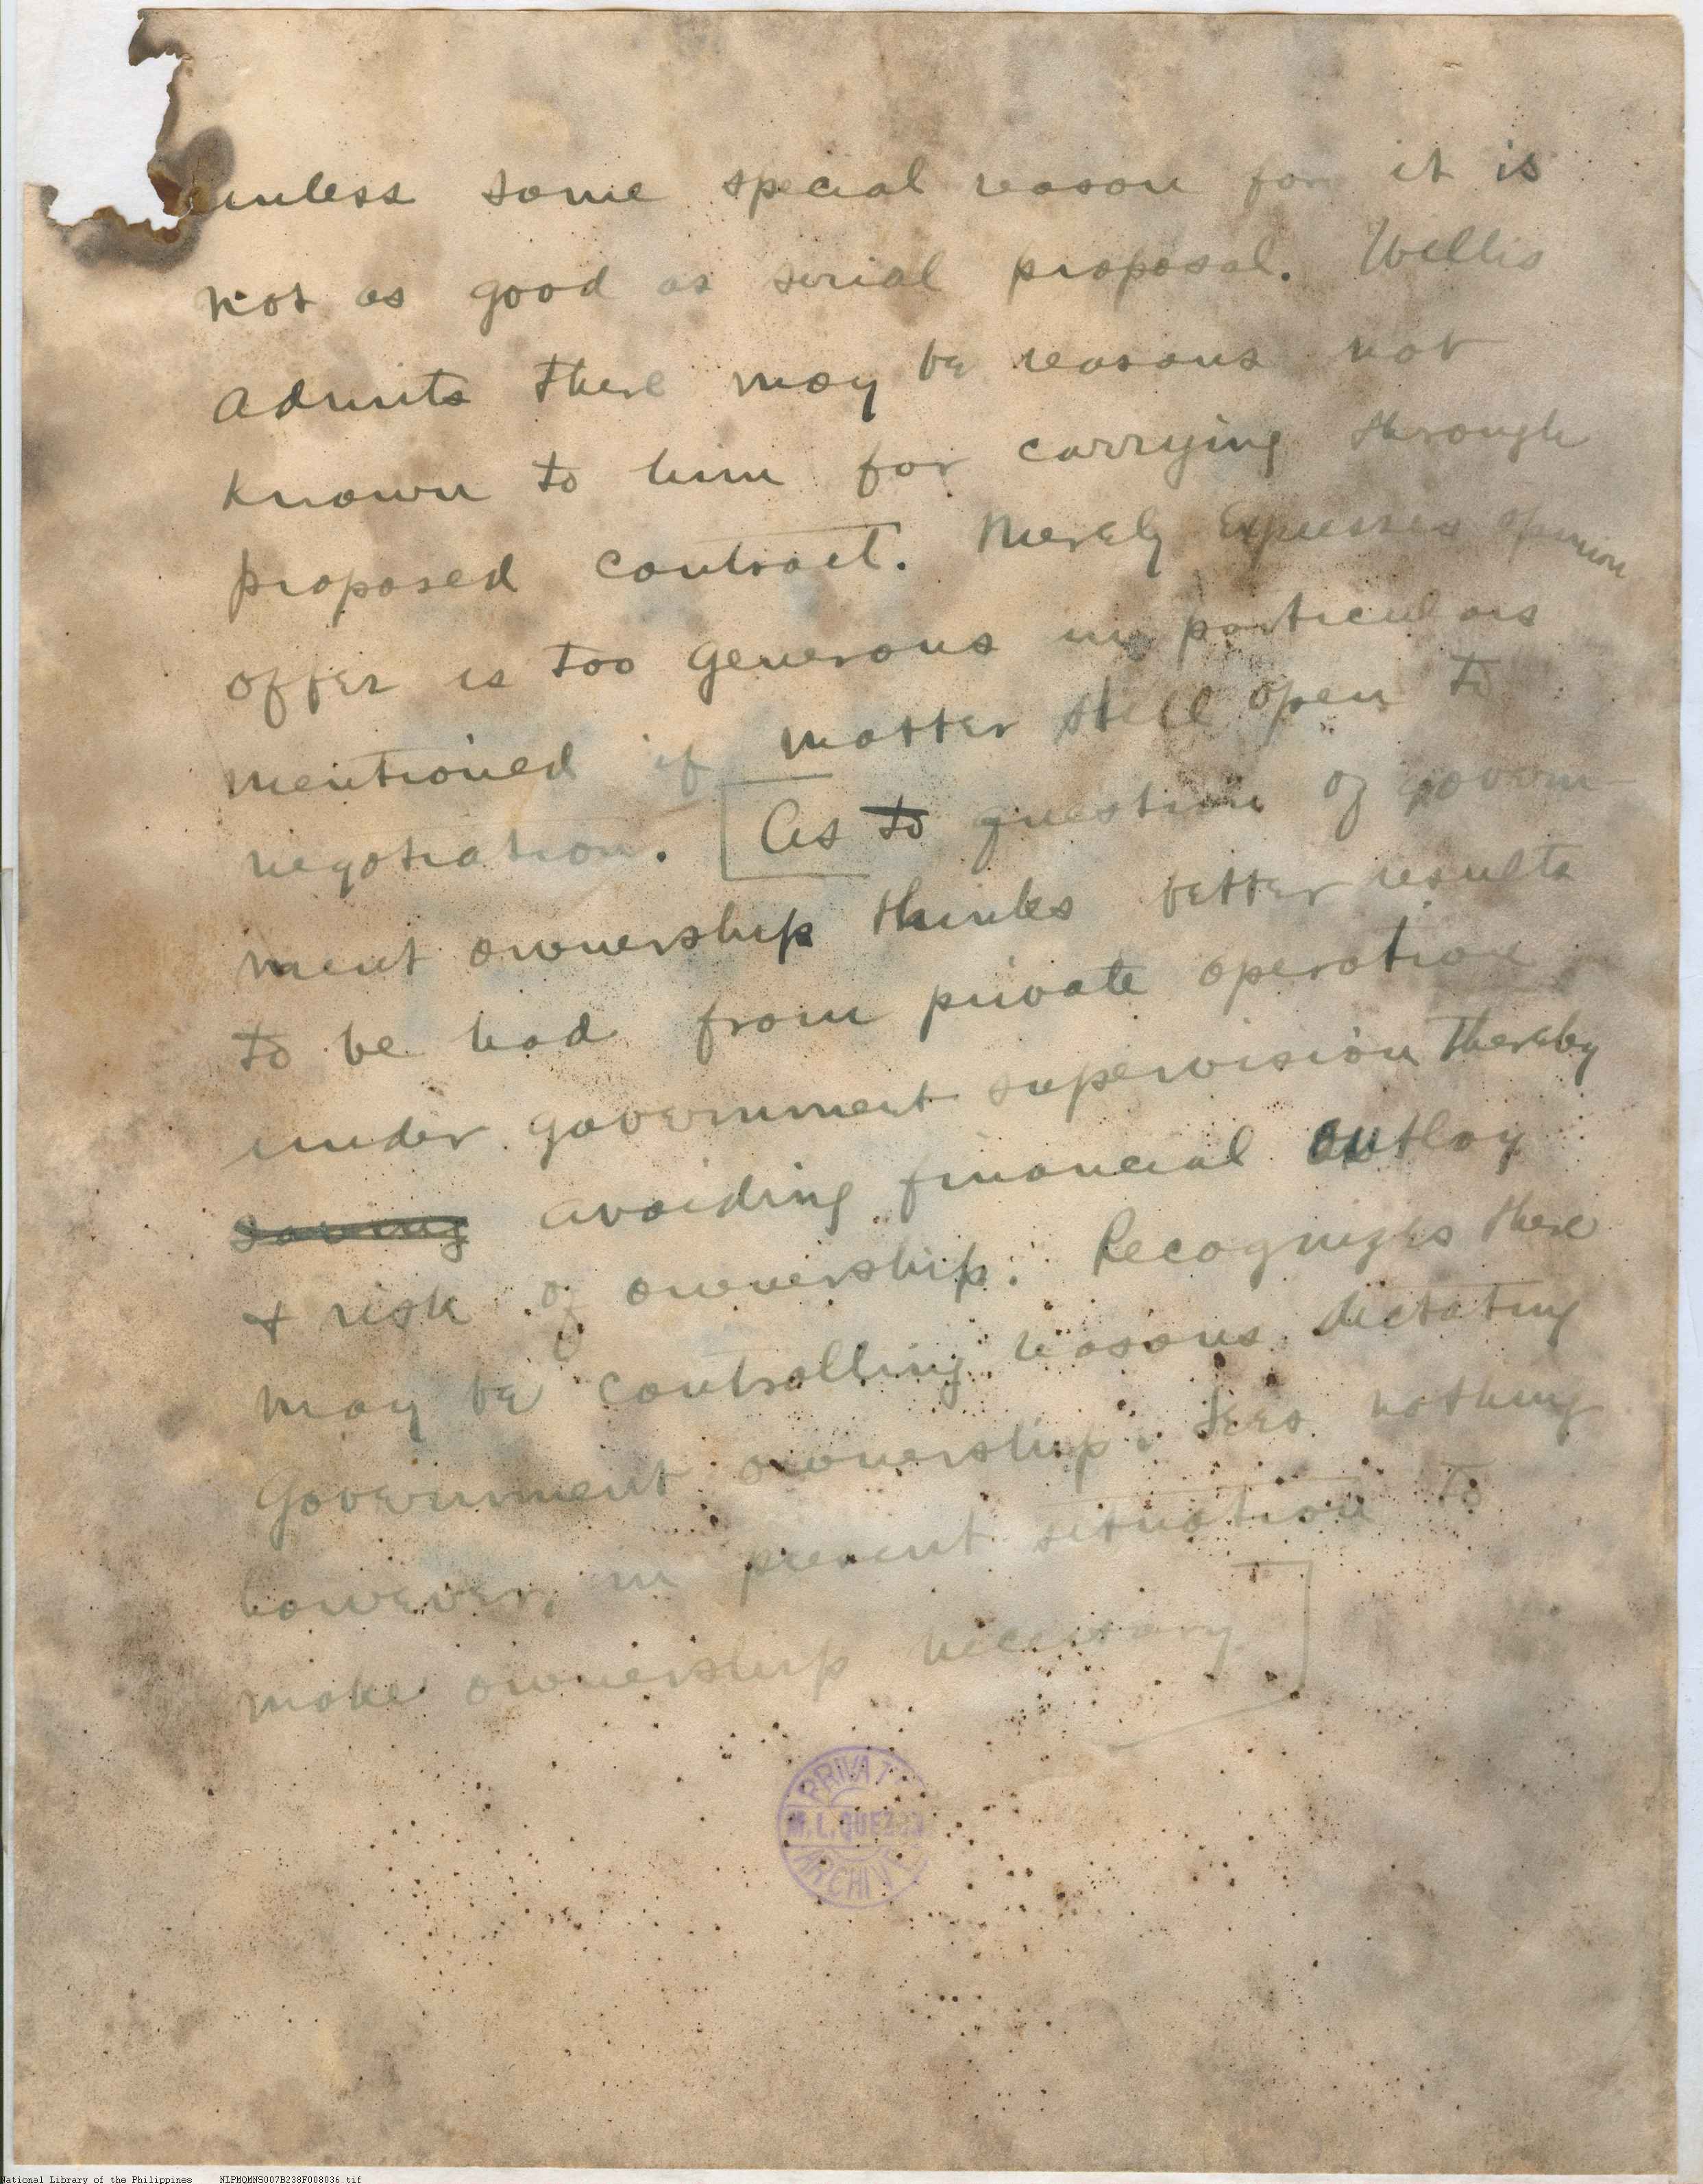 unless some special reason for it is
not as good as serial proposal. Willis
admits there may be reasons not
known to him for carrying through
proposed contract. Merely expresses opinion
offer is too generous in particulars
mentioned if matter still open to
negotiation. [As to question of govern-
ment ownership thinks better results
to be had from private operation
under government supervision thereby
saving avoiding financial outlay
& risk of ownership. Recognizes there
may be controlling reasons dictating
Government ownership. Sees nothing
however, in present situation to
make ownership necessary]
PRIVATE
M. L. QUEZON
ARCHIVE
National Library of the Philippines NLPMQMNS007B238F008036.tif